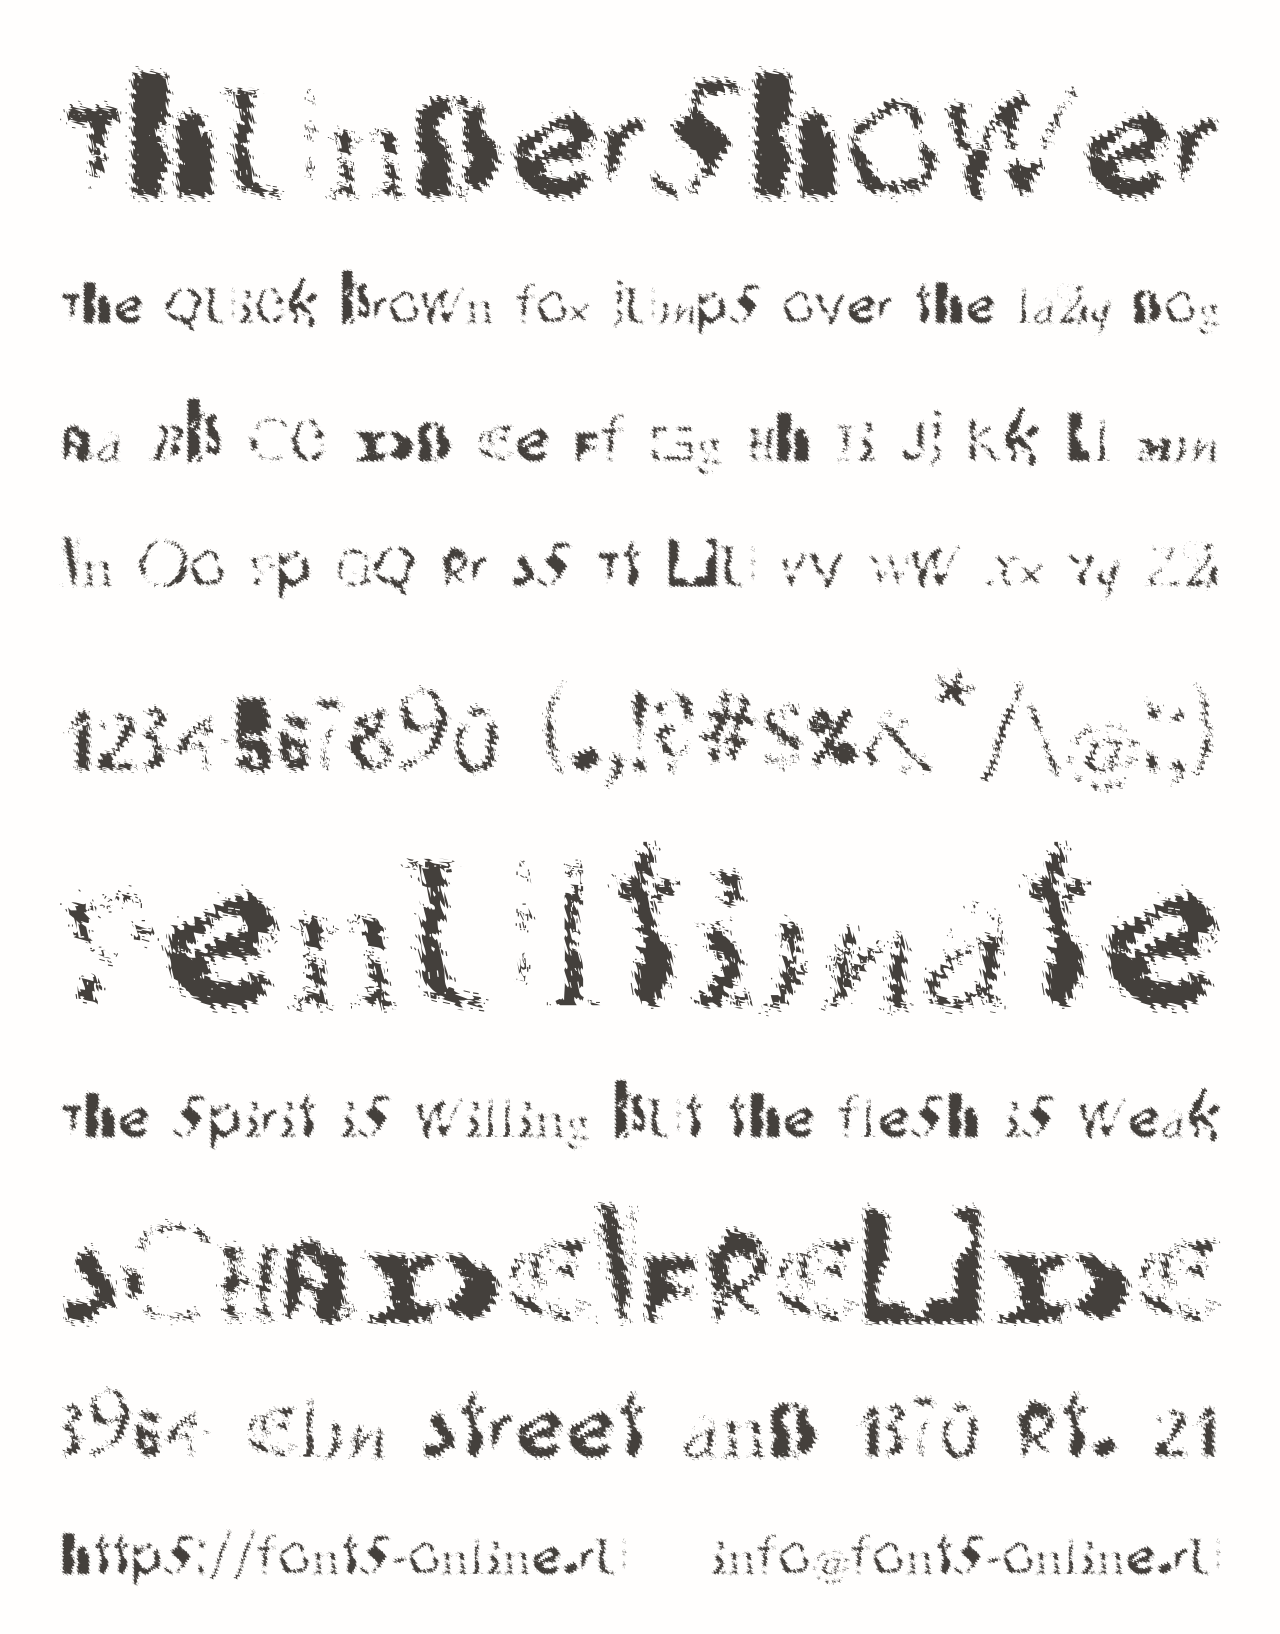 Thundershower
The quick brown fox jumps over the lazy dog
Aa Bb Cc Dd Ee Ff Gg Hh Ii Jj Kk Ll Mm
Nn Oo Pp Qq Rr Ss Tt Uu Vv Ww Xx Yy Zz
1234567890 (.,!?#$%&*/\@:;)
Penultimate
The spirit is willing but the flesh is weak
SCHADENFREUDE
3964 Elm Street and 1370 Rt. 21
https://fonts-online.ru info@fonts-online.ru